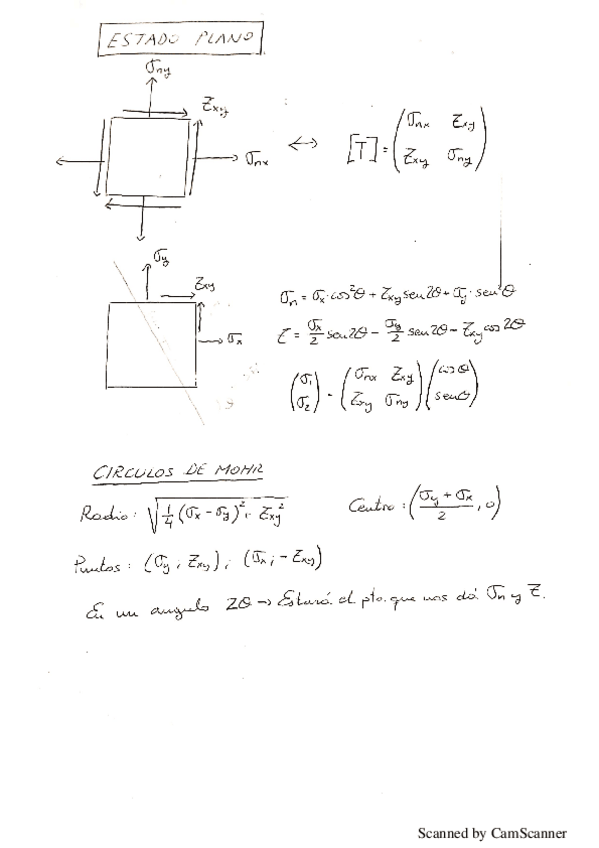 ESTADO PLANO
σny
τxy
σnx ⟷ [T] = (σnx τxy
τxy σny)
σy
τxy
σx
σn = σx·cos²θ + τxy sen2θ + σy·sen²θ
τ = σx/2 sen2θ − σy/2 sen2θ − τxy cos2θ
(σ1 σ2) = (σnx τxy
τxy σny) (cosθ senθ)
θ
CIRCULOS DE MOHR
Radio: √(1/4 (σx − σy)² + τxy²) Centro: ((σy + σx)/2, 0)
Puntos: (σy ; τxy) ; (σx ; −τxy)
En un angulo 2θ → Estará el pto. que nos dá σn y τ.
Scanned by CamScanner